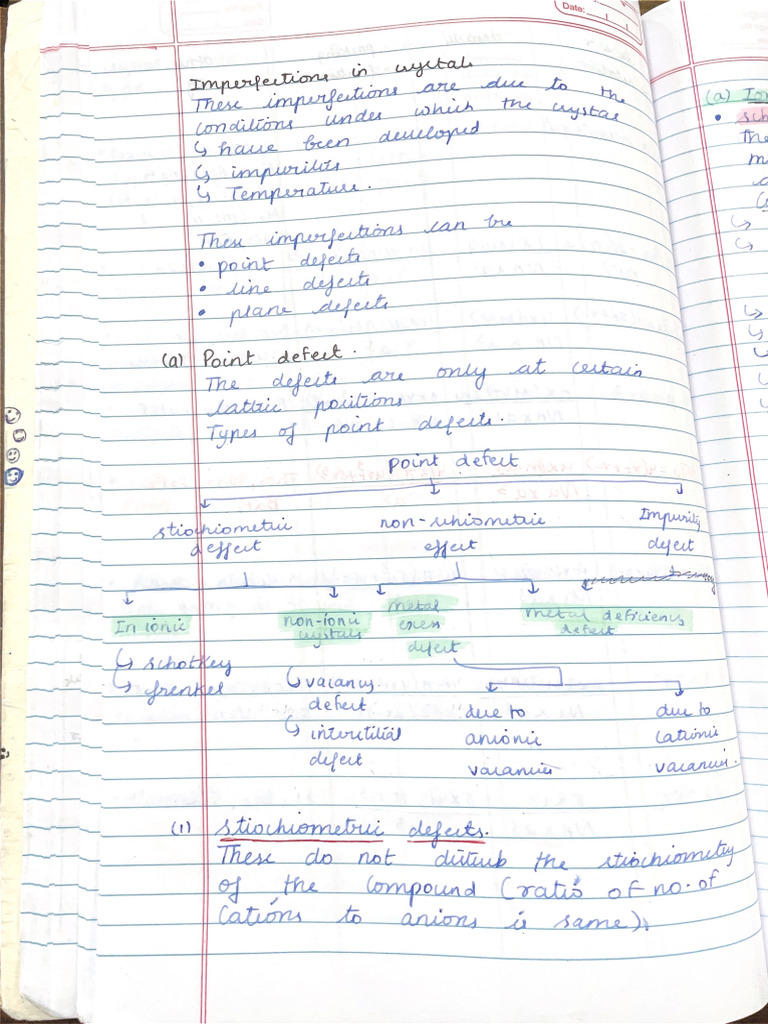 Date:
Imperfections in crystals
These imperfections are due to the
conditions under which the crystal
↳ have been developed
↳ impurities
↳ Temperature.
These imperfections can be
• point defects
• line defects
• plane defects
(a) Point defect.
The defects are only at certain
lattic positions
Types of point defects.
point defect
stiochiometric non-schiometric Impurity
deffect effect defect
In ionic non-ionic metal metal deficiency
crystals exess defect
defect
↳ schotkey ↳ vacancy
↳ frenkel defect due to due to
↳ interstitial anionic cationic
defect vacancies vacancies.
(1) stiochiometric defects.
These do not disturb the stiochiometry
of the compound (ratio of no. of
cations to anions is same).
(a)
•